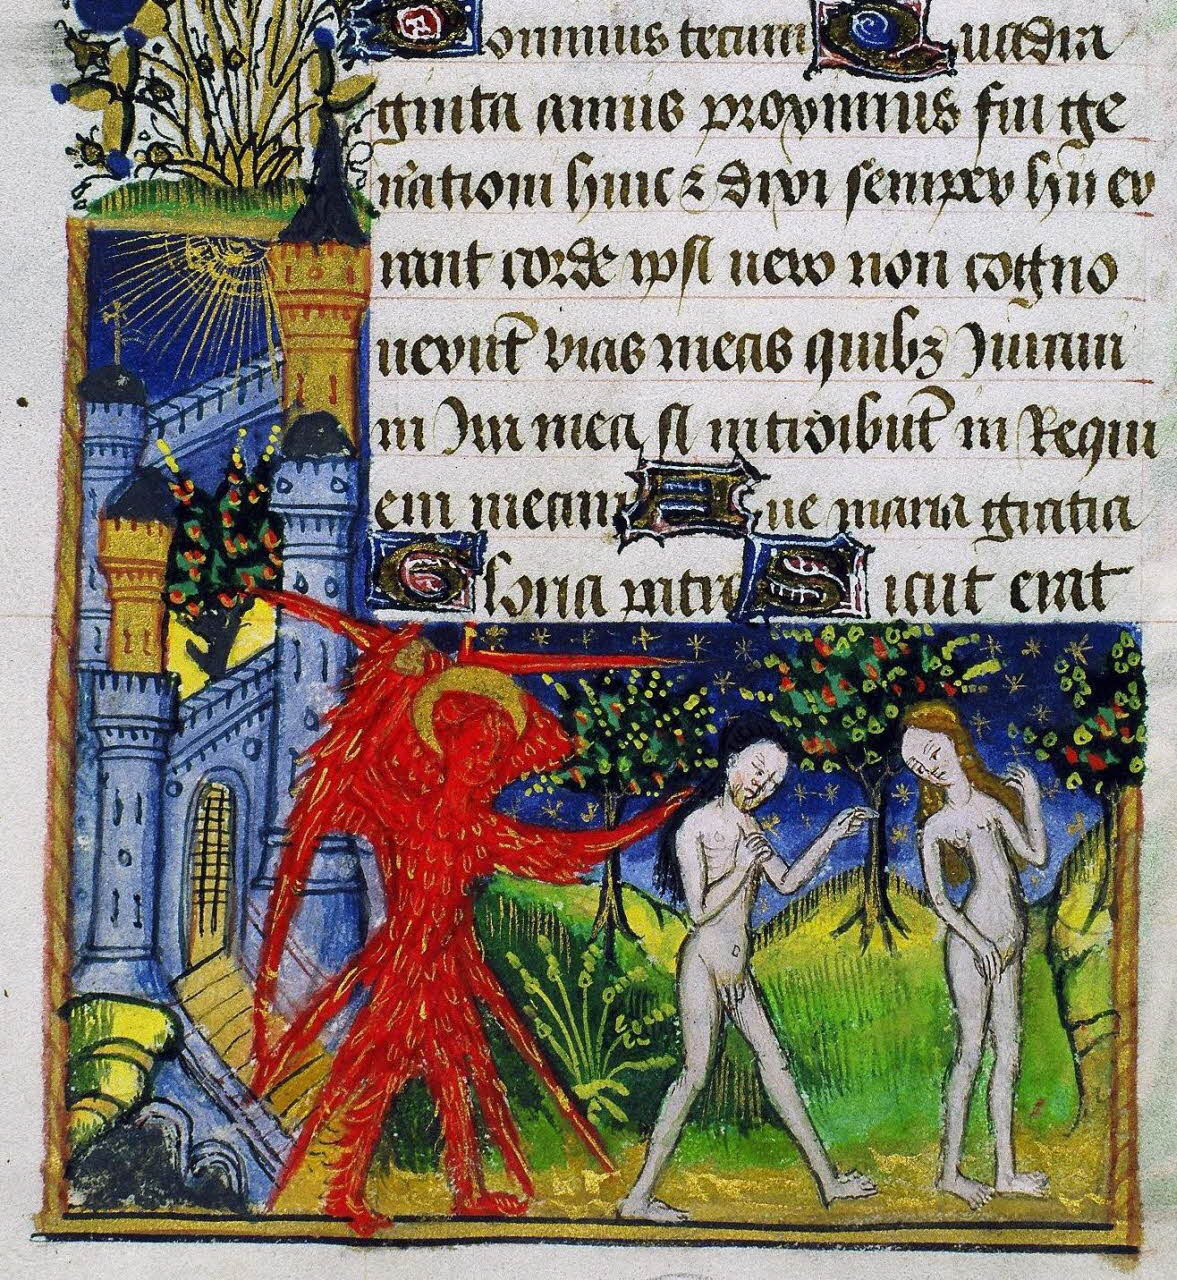 Dominus tecum Quadra
ginta annis proximus fui ge
n̄ationi huic ⁊ dixi semper hii er
rant corde ipsi uero non cogno
uerūt vias meas quibꝫ Iuraui
in Ira mea si introibūt in Requi
em meam Aue maria gratia
Gloria patri Sicut erat